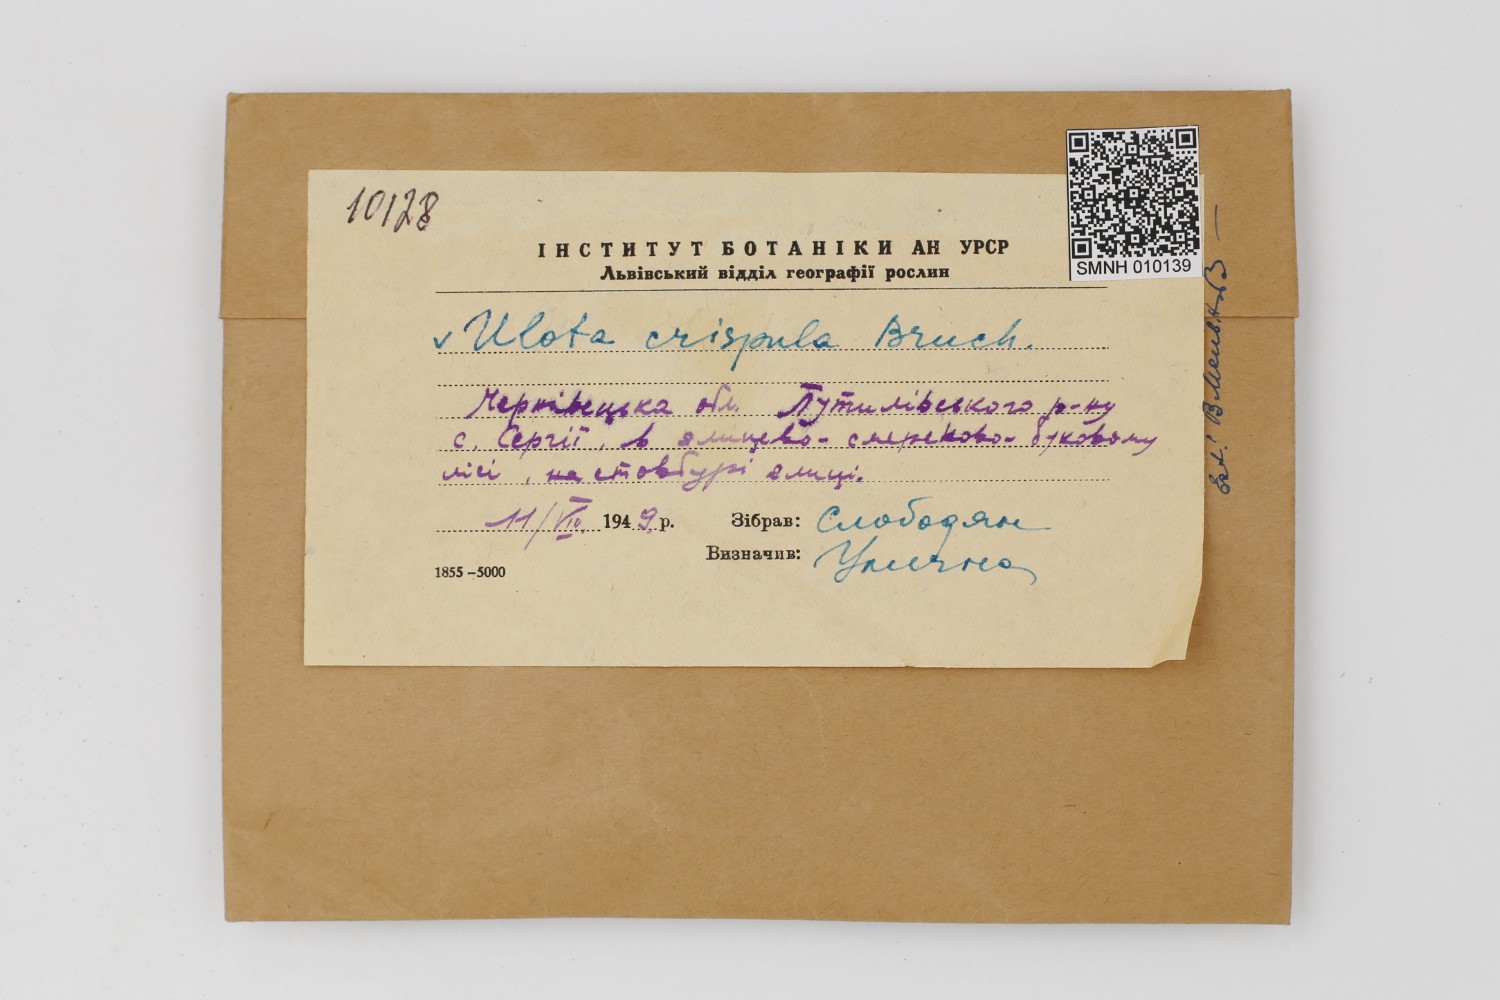 10128
SMNH 010139
ІНСТИТУТ БОТАНІКИ АН УРСР
Львівський відділ географії рослин
v Ulota crispula Bruch.
Чернівецька обл. Путилівського р-ну
с. Сергії, в ялицево-смереково-буковому
лісі, на стовбурі ялиці.
11/VII 1949 р. Зібрав: Слободян
Визначив: Улична
1855-5000